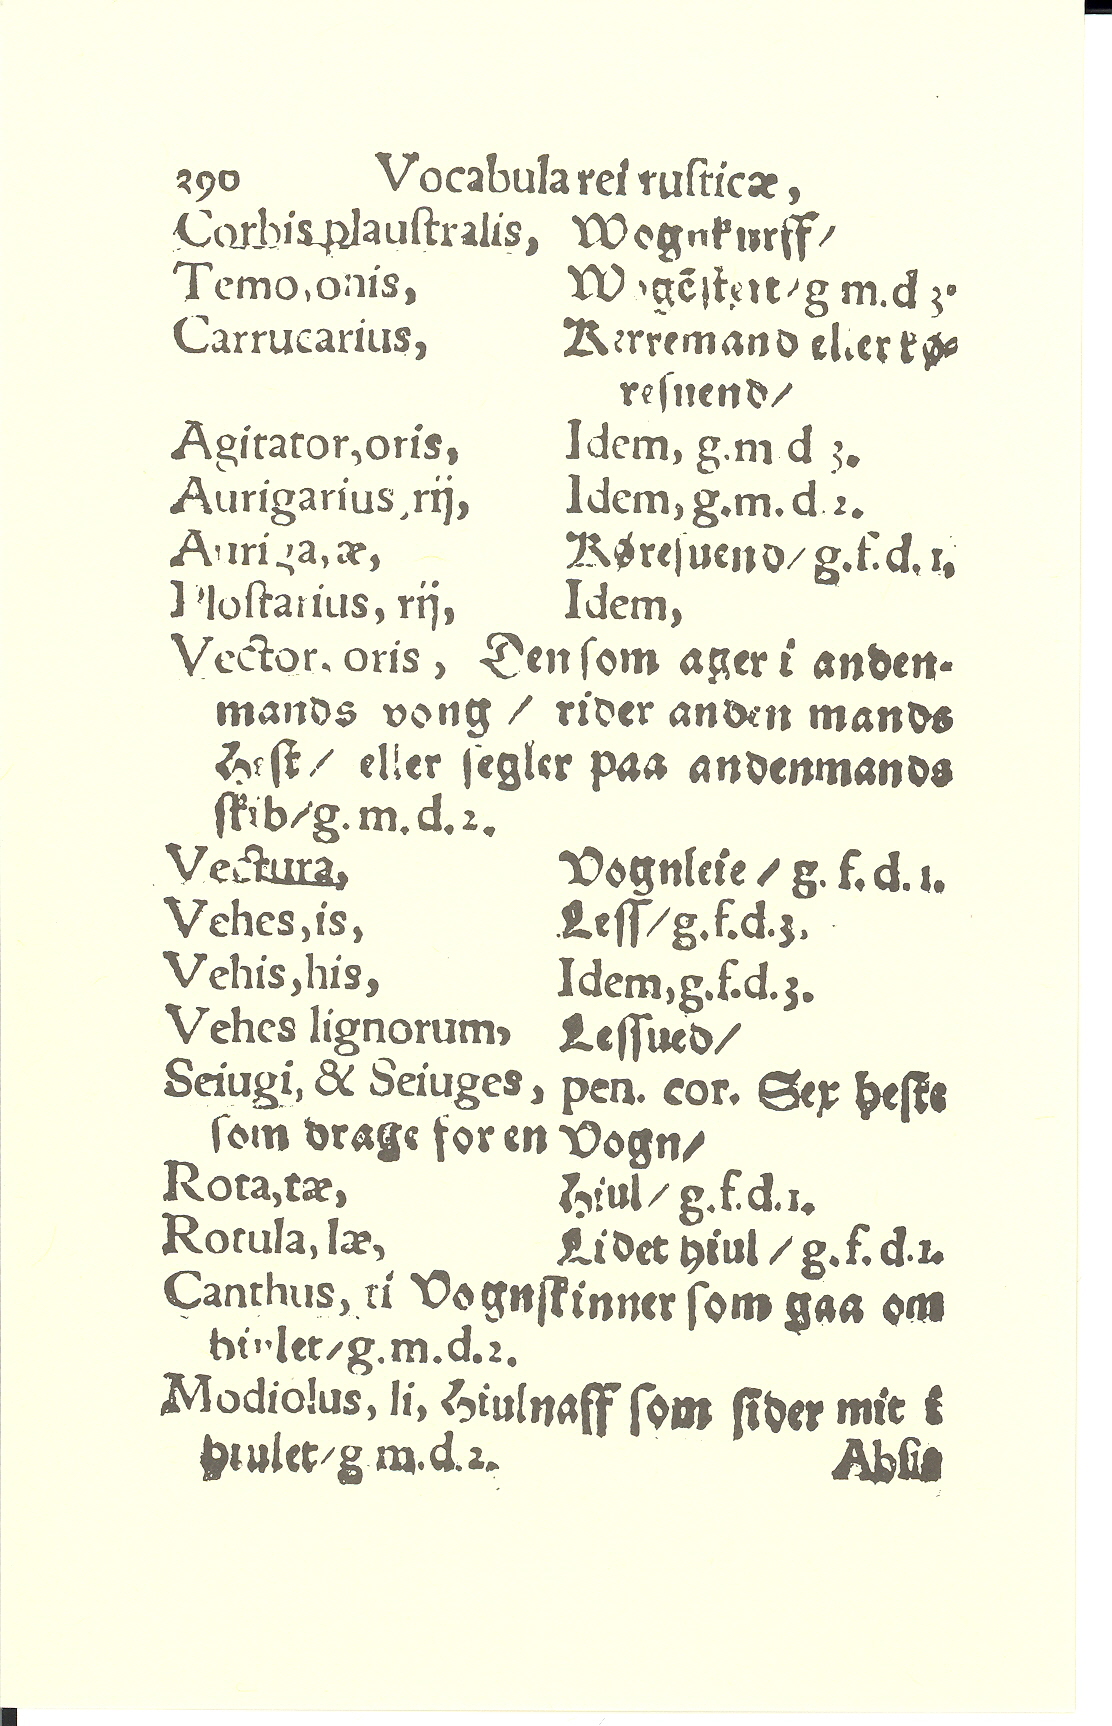 290 Vocabula rei ruſticæ,
Corbis plauſtralis, Wognkurff/
Temo, onis, g m.d 3.
Carrucarius, Kerremand eller kø-
reſuend/
Agitator, oris, Idem, g.m d 3.
Aurigarius, rij, Idem, g.m.d.2.
Auriga, æ, Køreſuend/ g.f.d.1,
Ploſtarius, rij, Idem,
Vector. oris, Den ſom ager i anden-
mands vong / rider anden mands
Heſt/ eller ſegler paa andenmands
ſkib/g.m.d.2.
Vectura, Vognleie / g. f.d.1.
Vehes, is, Leſſ/g.f.d.3.
Vehis, his, Idem, g.f.d.3.
Vehes lignorum, Leſſued/
Seiugi, & Seiuges, pen. cor. Sex heſte
ſom drage for en Vogn/
Rota, tæ, Hiul/ g.f.d.1.
Rotula, læ, Lidet hiul / g.f.d.1.
Canthus, ti Vognſkinner ſom gaa om
hiulet/g.m.d.2.
Modiolus, li, Hiulnaff ſom ſider mit i
hiulet/g m.d.2. Abſis